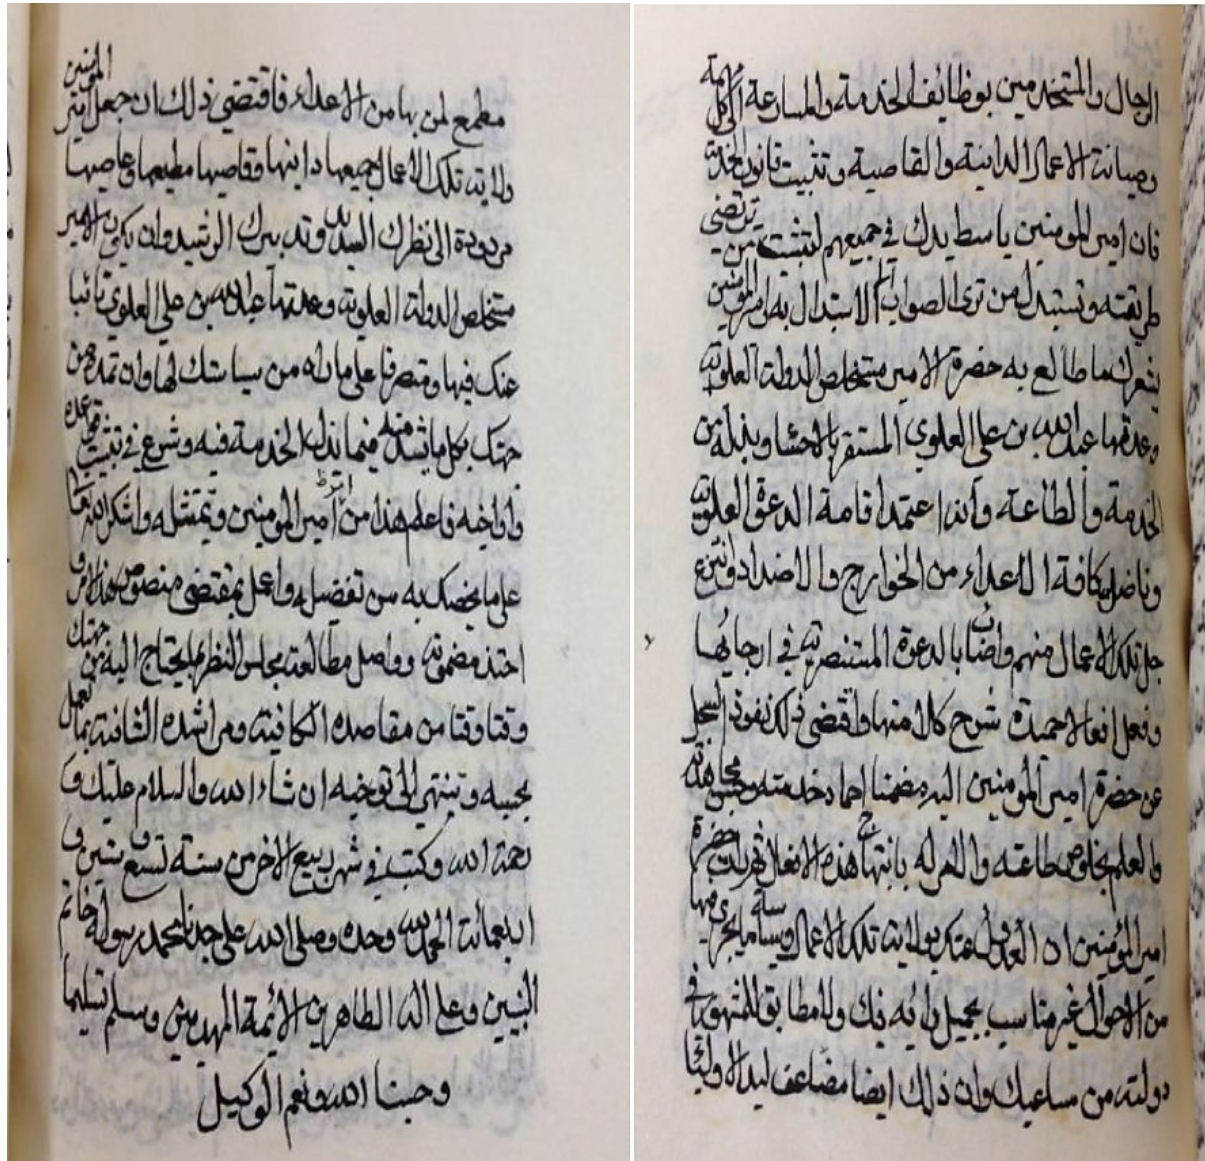 الرجال والمستخدمين بوظائف الخدمة والمسارعة الى كل مهمة
وصيانة الاعمال الدانية والقاصية وتثبيت قانون الخدمة
فان امير المومنين باسط يدك في جميعهم لتثبت من ترتضي
طريقته وتستبدل من ترى الصواب الاستبدال به وامير المومنين
يشعرك بما طالع به حضرة الامير مستخلص الدولة العلوية
وعدتها عبد الله بن علي العلوي المستقر بالاحسا وبذله من
الخدمة والطاعة وانه اعتمد اقامة الدعوة العلوية
وناضل كافة الاعداء من الخوارج والاضداد وانتزع
جل تلك الاعمال منهم بالدعوة المستنصرية في ارجايها
وفعل افعالا حميدة شرح كلا منها واقتضى ذلك نفوذ السجل
عن حضرة امير المومنين اليه مضمنا احماد خدمته وحسن مجاهدته
والعلم بخلوص طاعته بانتهاج هذه الافعال حضرة
امير المومنين ان بولاية تلك الاعمال وسياسة ما يجري فيها
من الاحوال غير مناسب بجميل رأيه فيك ولا مطابق للمشهور في
دولته من مساعيك وان ذلك ايضا مضاعف ليد الاوليا
مطمع لمن بها من الاعداء فاقتضى ذلك ان جعل امير المومنين
ولاية تلك الاعمال جميعها دانيها وقاصيها مطيعها وعاصيها
مردودة الى نظرك السديد وتدبيرك الرشيد وان يكون الامير
مستخلص الدولة العلوية وعدتها عبد الله بن علي العلوي نائبا
عنك فيها ومتصرفا على ما تراه من سياستك لها وان تمده من
جهتك بكل ما يشد منه فيما بذل الخدمة فيه وشرع في تثبيت قواعده
وأواخيه فاعلم هذا من امر امير المومنين وتمثله واشكر الله
على ما يخصك به من تفضيله واعمل بمقتضى منصوص هذا الامر و
احتذ مضمونه وواصل مطالعة مجلس النظر بما يحتاج اليه من جهتك
وقتا وقتا من مقاصده الكافية ومراشده الشافية بما تعمل
بحسبه وتنتهي الى توخيه ان شاء الله والسلام عليك و
رحمة الله وكتب في شهر ربيع الاخر من سنة تسع وستين و
اربعمائة الحمد لله وحده وصلى الله على جدنا محمد رسوله خاتم
النبيين وعلى اله الطاهرين الائمة المهديين وسلم تسليما
وحسبنا الله ونعم الوكيل